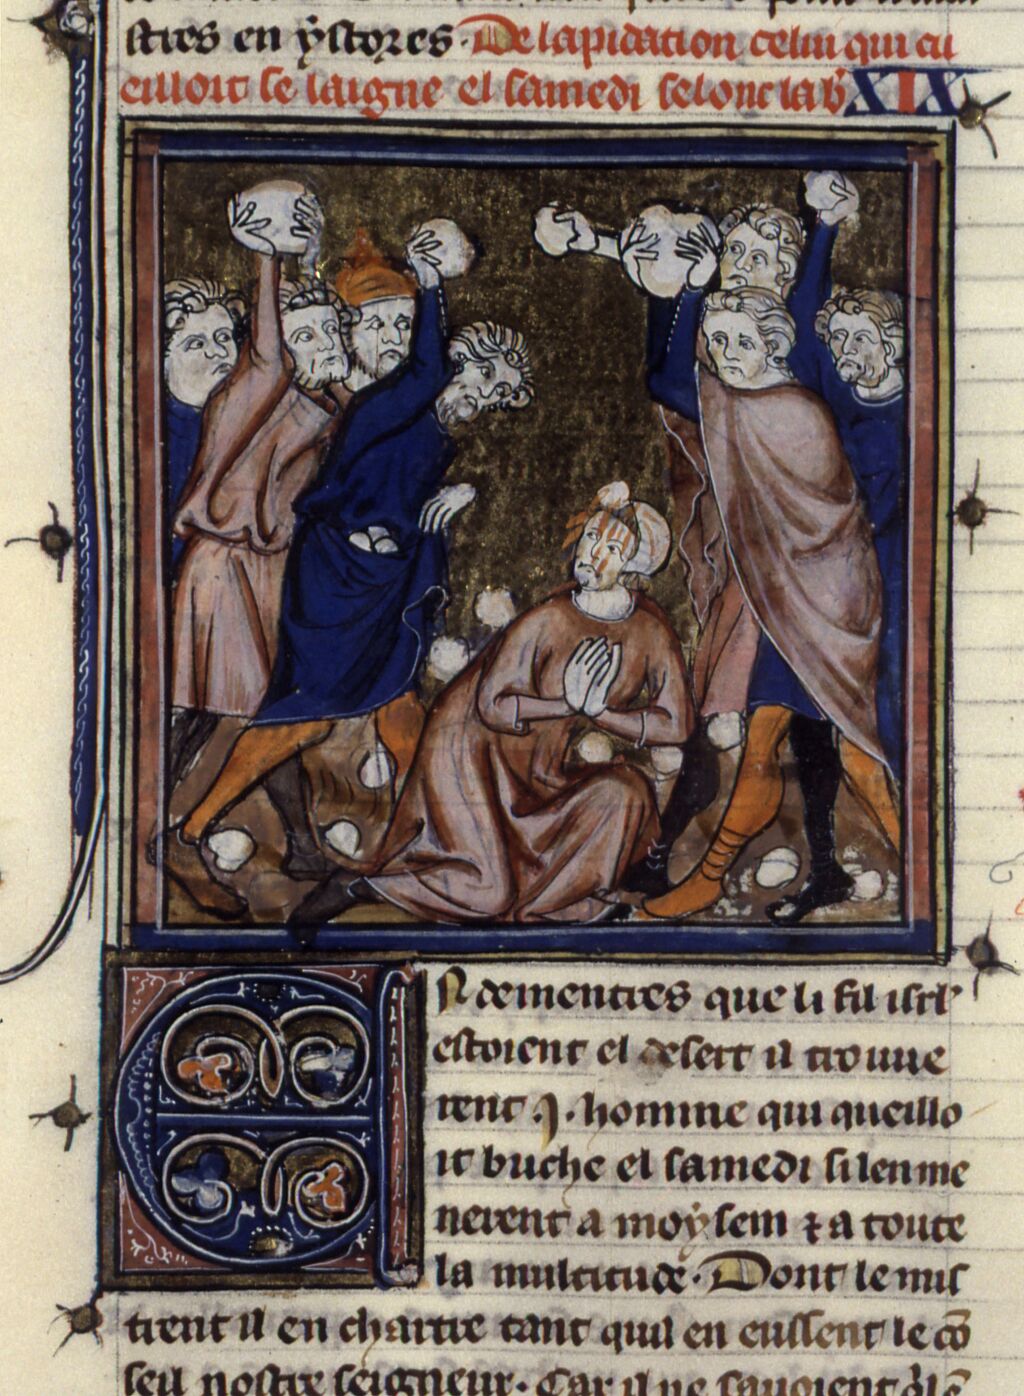 stres en ystores. De lapidation celui qui cu
eilloit se laigne el samedi selonc la b' XIX
En dementres que li fil isrl'
estoient el desert il trouue
rent .I. homme qui queillo
it buche el samedi si lenme
nerent a moysem ⁊ a toute
la multitude. Dont le mis
trent il en chartre tant quil en eussent le cō
seil nostre seigneur. Car il ne sauoient